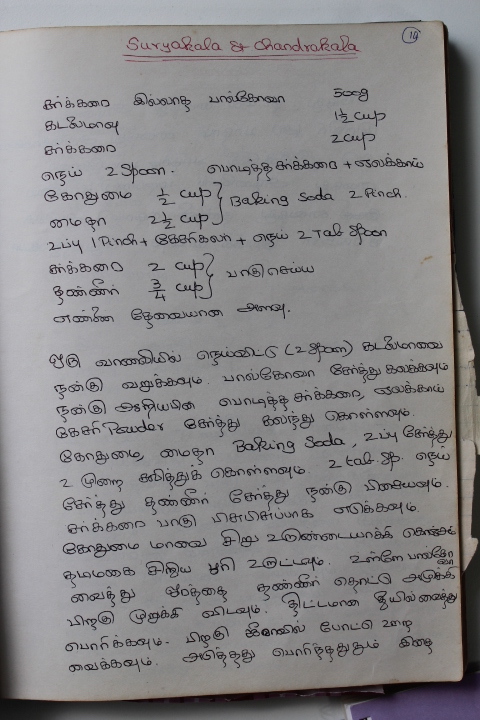 14
Suryakala & Chandrakala
சர்க்கரை இல்லாத பால்கோவா 500g
கடலைமாவு 1½ cup
சர்க்கரை 2 cup
நெய் 2 Spoon. பொடித்த சர்க்கரை + ஏலக்காய்
கோதுமை ½ cup } Baking Soda 2 Pinch.
மைதா 2½ cup
உப்பு 1 Pinch + கேசரிகலர் + நெய் 2 Tab Spoon
சர்க்கரை 2 cup } பாகு செய்ய
தண்ணீர் ¾ cup
எண்ணெய் தேவையான அளவு.
ஒரு வாணலியில் நெய்விட்டு (2 Spoon) கடலைமாவை
நன்கு வறுக்கவும். பால்கோவா சேர்த்து கலக்கவும்
நன்கு ஆறியபின் பொடித்த சர்க்கரை, ஏலக்காய்
கேசரி Powder சேர்த்து கலந்து கொள்ளவும்.
கோதுமை, மைதா Baking Soda, உப்பு சேர்த்து
2 முறை சலித்துக் கொள்ளவும். 2 tab. Sp. நெய்
சேர்த்து தண்ணீர் சேர்த்து நன்கு பிசையவும்.
சர்க்கரை பாகு பிசுபிசுப்பாக எடுக்கவும்.
கோதுமை மாவை சிறு உருண்டையாக்கி கொஞ்சம்
சிறிய பூரி உருட்டவும். உள்ளே பால்கோவா
வைத்து ஓரத்தை தண்ணீர் தொட்டு அழுத்தி
பிறகு முறுக்கி விடவும். திட்டமான தீயில் வைத்து
பொரிக்கவும். பிறகு ஜீராவில் போட்டு ஊற
வைக்கவும். அடுத்தது பொரித்ததும் இதை